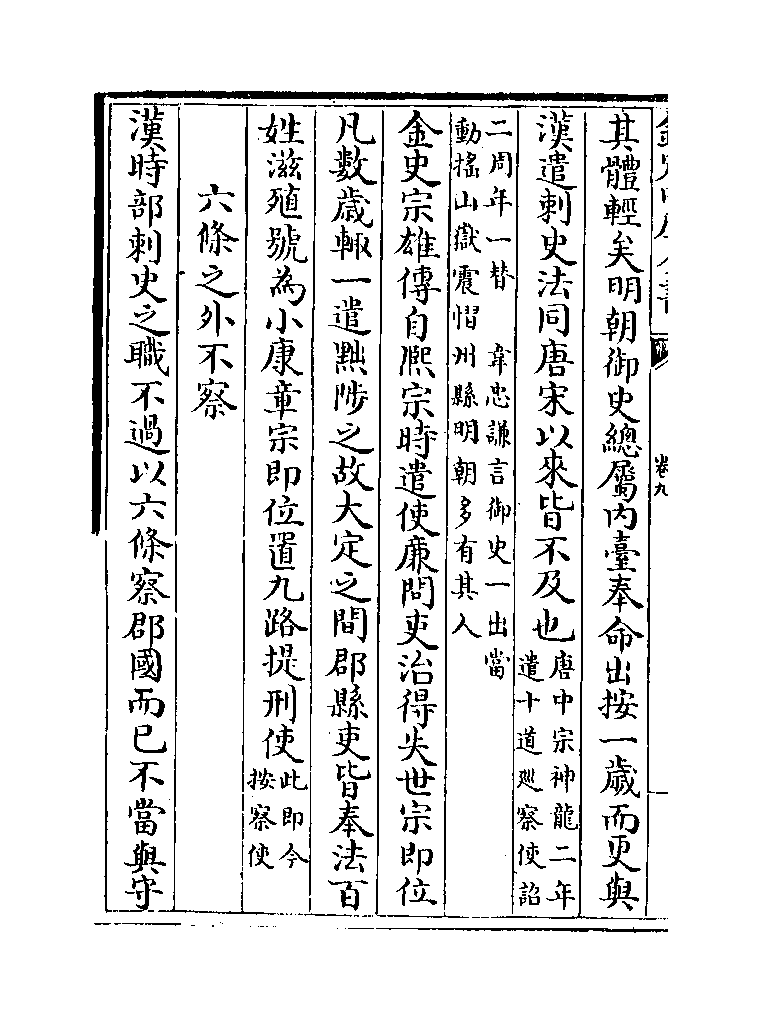 卷九
其體輕矣明朝御史總屬内臺奉命出按一歲而更與
漢遣刺史法同唐宋以來皆不及也唐中宗神龍二年遣十道廵察使詔
二周年一替　韋忠謙言御史一出當動搖山嶽震慴州縣明朝多有其人
金史宗雄傳自熈宗時遣使廉問吏治得失世宗即位
凡數歳輙一遣黜陟之故大定之間郡縣吏皆奉法百
姓滋殖號為小康章宗即位置九路提刑使此即今按察使
六條之外不察
漢時部刺史之職不過以六條察郡國而已不當與守